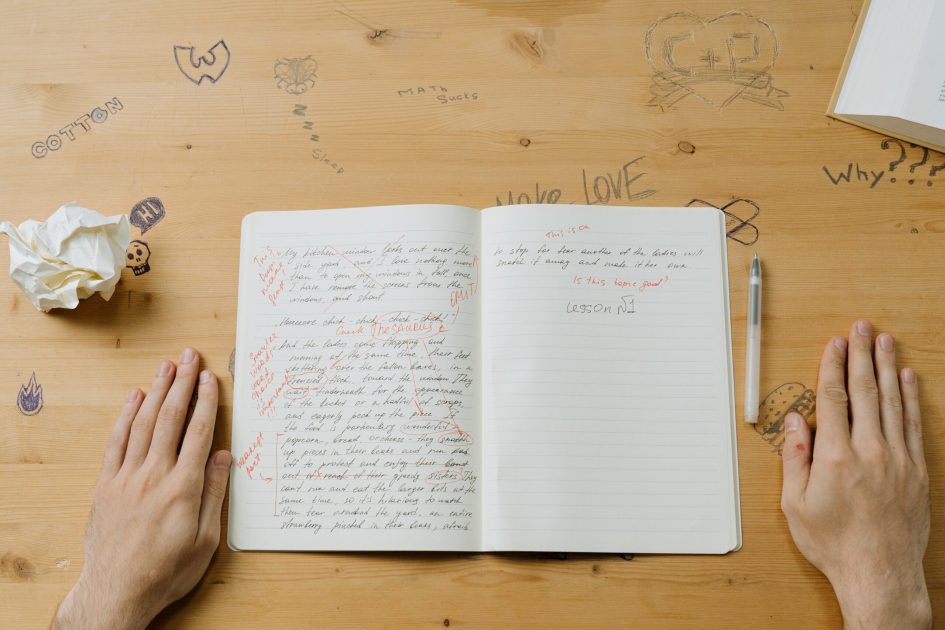 W
COTTON
MATH
SUCKS
C+P
Z
N
N
Sleep
Make LOVE
Why???
HI
This is
My kitchen window looks out over the
side yard, and I love nothing more
than to open my windows in fall once
I have remove the screens from the
windows, and shout
OMIT
chick-chick-chick-chick!
Check Thesaurus
And the ladies come flapping and
running at the same time, their feet
over the fallen leaves, in a
flock, toward the window. They
wait underneath for the appearance
of the bucket or a handful of scraps,
and eagerly peck up the piece. If
the food is particularly wonderful
popcorn, bread, or cheese - they snatch
up pieces in their beaks and run
off to protect and enjoy their
out of reach of their greedy sisters. They
can't run and eat the larger bits at the
same time, so it's hilarious to watch
them tear around the yard, an entire
strawberry pinched in their beaks, afraid
Smaller
words
word
choice
Weakest
part
This is a
to stop for fear another of the ladies will
snatch it away and make it her own.
Is this topic good?
Lesson №1